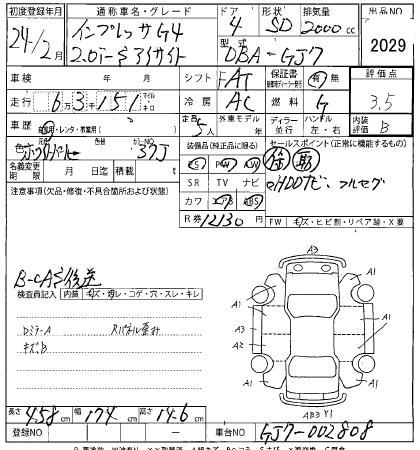 初度登録年月 通称車名・グレード ドア 形状 排気量 出品NO
24年12月 インプレッサG4 4 SD 2000cc
2.0i-S アイサイト 型式 DBA-GJ7 2029
車検 年 月 シフト FAT 保証書 有・無 評価点
走行 6万3千151 マイル キロ 冷房 AC 燃料 G 3.5
車歴 自家用・レンタ・教業用( ) 定員 5人 外車モデル 年 ディーラー 並行 ハンドル 左・右 内装評価 B
色 ホワイトパール 色替 カラーNO 37J 装備品(純正品に限る) セールスポイント(正常に機能するもの)
PS PW AW 保 取
名義変更期限 月 日迄 積載 kg SR TV ナビ ○HDDナビ・フルセグ
注意事項(欠品・修復・不具合箇所および状態) カワ エアB ABS
R券 12130 円 FW キズ・ヒビ割・リペア跡・X要
B-CAS後送
検査員記入 内装 キズ・汚レ・コゲ・穴・スレ・キレ
DミラーA Rパネル歪み
キズB
A3
A1 A1
A2 A1
A3
A2 A1
A1 A1
AB3 Y1
長さ 458cm 幅 174cm 高さ 146cm
登録NO ー 車台NO GJ7-002808